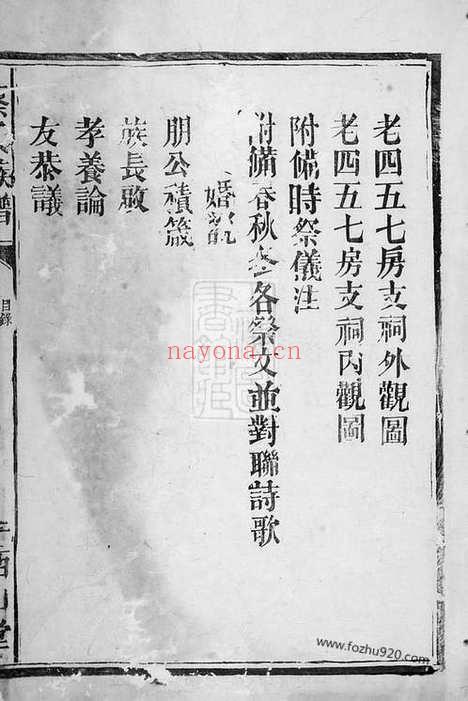 老四五七房支祠外觀圖
老四五七房支祠內觀圖
附備時祭儀注
附備春秋各祭文並對聯詩歌
婚說
朋公積箴
族長政
孝養論
友恭議
族譜
目錄
堂
nayona.cn
www.fozhu920.com